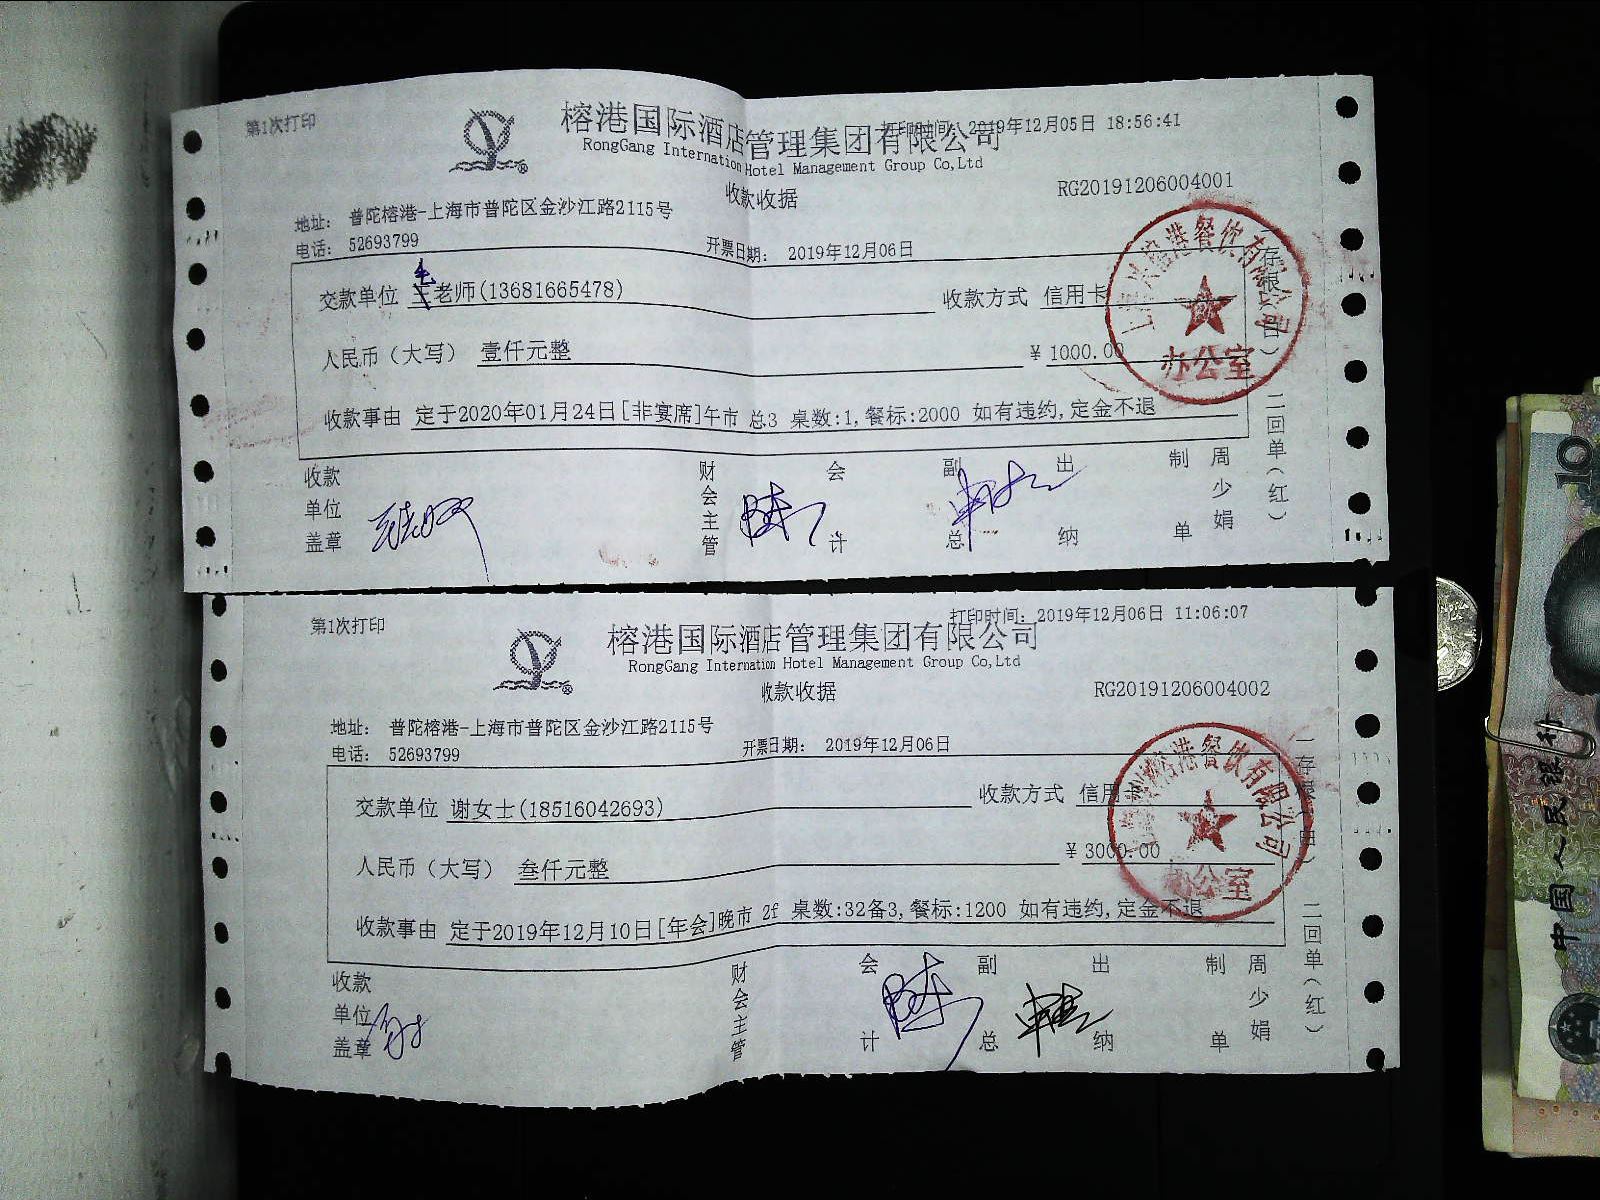 第1次打印
打印时间: 2019年12月05日 18:56:41
榕港国际酒店管理集团有限公司
RongGang Internation Hotel Management Group Co,Ltd
收款收据
RG20191206004001
地址: 普陀榕港-上海市普陀区金沙江路2115号
电话: 52693799
开票日期: 2019年12月06日
交款单位 毛老师(13681665478) 收款方式 信用卡
人民币(大写) 壹仟元整 ¥ 1000.00
收款事由 定于2020年01月24日[非宴席]午市 总3 桌数:1,餐标:2000 如有违约,定金不退
收款单位盖章 财会主管 会计 副总 出纳 制单 周少娟
二回单(红)
港餐饮有限公司
办公室
第1次打印
打印时间: 2019年12月06日 11:06:07
榕港国际酒店管理集团有限公司
RongGang Internation Hotel Management Group Co,Ltd
收款收据
RG20191206004002
地址: 普陀榕港-上海市普陀区金沙江路2115号
电话: 52693799
开票日期: 2019年12月06日
交款单位 谢女士(18516042693) 收款方式 信用
人民币(大写) 叁仟元整 ¥ 3000.00
收款事由 定于2019年12月10日[年会]晚市 2f 桌数:32备3,餐标:1200 如有违约,定金不退
收款单位盖章 财会主管 会计 副总 出纳 制单 周少娟
二回单(红)
港餐饮有限公司
办公室
10
中国人民银行